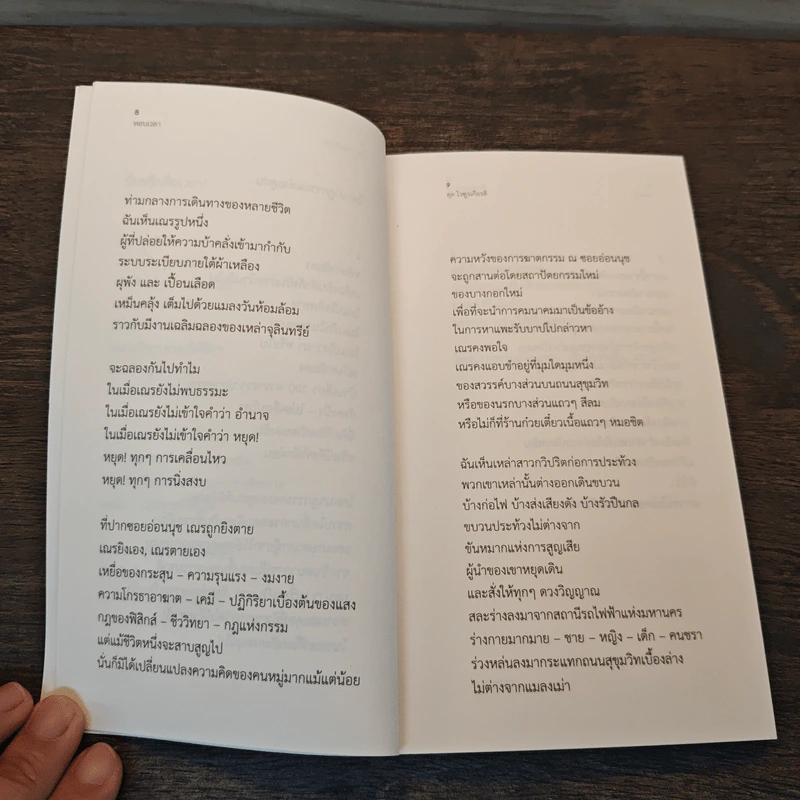 8
หอบเวลา
ท่ามกลางการเดินทางของหลายชีวิต
ฉันเห็นเณรรูปหนึ่ง
ผู้ที่ปล่อยให้ความบ้าคลั่งเข้ามากำกับ
ระบบระเบียบภายใต้ผ้าเหลือง
ผุพัง และ เปื้อนเลือด
เหม็นคลุ้ง เต็มไปด้วยแมลงวันห้อมล้อม
ราวกับมีงานเฉลิมฉลองของเหล่าจุลินทรีย์
จะฉลองกันไปทำไม
ในเมื่อเณรยังไม่พบธรรมะ
ในเมื่อเณรยังไม่เข้าใจคำว่า อำนาจ
ในเมื่อเณรยังไม่เข้าใจคำว่า หยุด!
หยุด! ทุกๆ การเคลื่อนไหว
หยุด! ทุกๆ การนิ่งสงบ
ที่ปากซอยอ่อนนุช เณรถูกยิงตาย
เณรยิงเอง, เณรตายเอง
เหยื่อของกระสุน – ความรุนแรง – งมงาย
ความโกรธาอาฆาต – เคมี – ปฏิกิริยาเบื้องต้นของแสง
กฎของฟิสิกส์ – ชีววิทยา – กฎแห่งกรรม
แต่แม้ชีวิตหนึ่งจะสาบสูญไป
นั่นก็มิได้เปลี่ยนแปลงความคิดของคนหมู่มากแม้แต่น้อย
9
ไวฑูรเกียรติ
ความหวังของการฆาตกรรม ณ ซอยอ่อนนุช
จะถูกสานต่อโดยสถาปัตยกรรมใหม่
ของบางกอกใหม่
เพื่อที่จะนำการคมนาคมมาเป็นข้ออ้าง
ในการหาแพะรับบาปไปกล่าวหา
เณรคงพอใจ
เณรคงแอบขำอยู่ที่มุมใดมุมหนึ่ง
ของสวรรค์บางส่วนบนถนนสุขุมวิท
หรือของนรกบางส่วนแถวๆ สีลม
หรือไม่ก็ที่ร้านก๋วยเตี๋ยวเนื้อแถวๆ หมอชิต
ฉันเห็นเหล่าสาวกวิปริตก่อการประท้วง
พวกเขาเหล่านั้นต่างออกเดินขบวน
บ้างก่อไฟ บ้างส่งเสียงดัง บ้างรัวปืนกล
ขบวนประท้วงไม่ต่างจาก
ขันหมากแห่งการสูญเสีย
ผู้นำของเขาหยุดเดิน
และสั่งให้ทุกๆ ดวงวิญญาณ
สละร่างลงมาจากสถานีรถไฟฟ้าแห่งมหานคร
ร่างกายมากมาย – ชาย – หญิง – เด็ก – คนชรา
ร่วงหล่นลงมากระแทกถนนสุขุมวิทเบื้องล่าง
ไม่ต่างจากแมลงเม่า